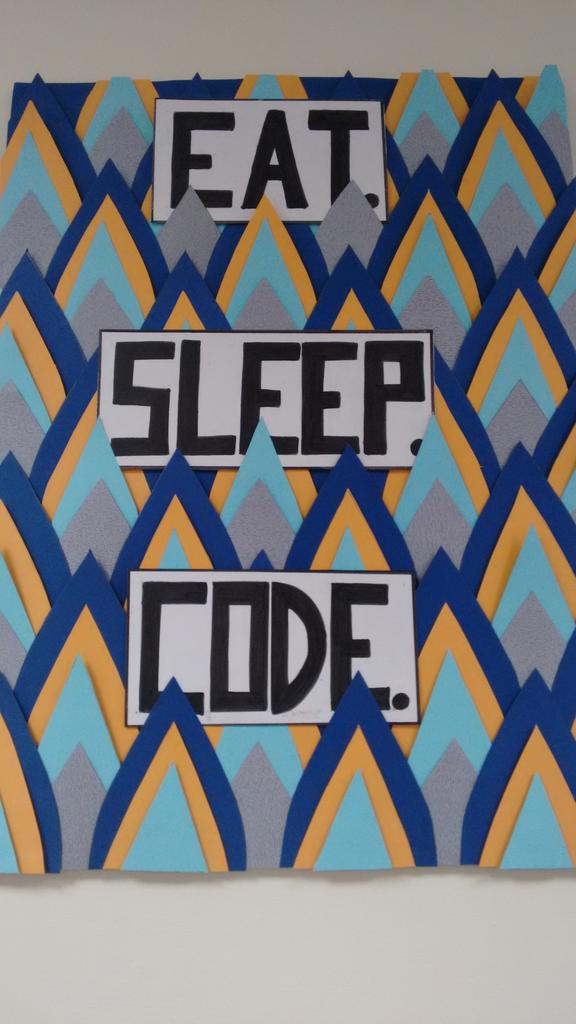 EAT.
SLEEP.
CODE.